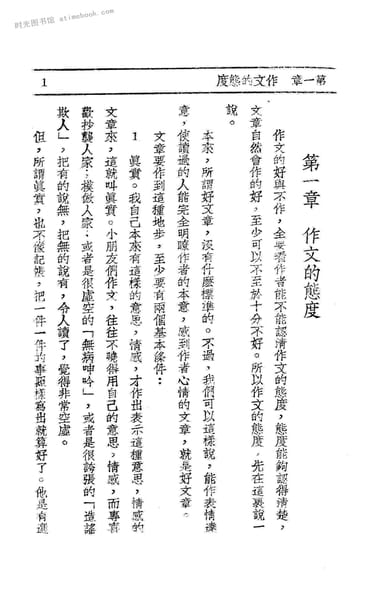 时光图书馆 atimebook.com
第一章 作文的態度
1
第一章 作文的態度
作文的好與不作，全要看作者能不能認清作文的態度，態度能夠認得清楚，
文章自然會作的好，至少可以不至於十分不好。所以作文的態度，先在這裏說一
說。
本來，所謂好文章，沒有什麼標準的。不過，我們可以這樣說，能作表情達
意，使讀過的人能完全明瞭作者的本意，感到作者心情的文章，就是好文章。
文章要作到這種地步，至少要有兩個基本條件：
1 眞實。我自己本來有這樣的意思，情感，才作出表示這種意思，情感的
文章來，這就叫眞實。小朋友們作文，往往不曉得用自己的意思，情感，而專喜
歡抄襲人家；模倣人家；或者是很虛空的「無病呻吟」，或者是很誇張的「造謠
欺人」，把有的說無，把無的說有，令人讀了，覺得非常空虛。
但，所謂眞實，也不像記帳，把一件一件的事照樣寫出就算好了。他是有進